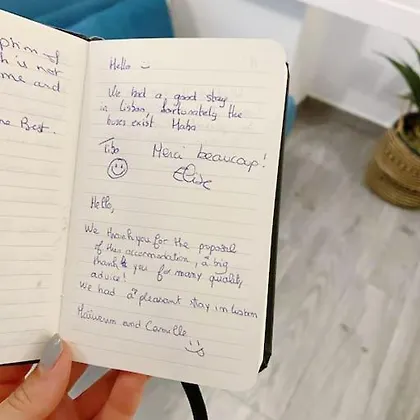 ph n of
h is not
me and
ne Best.
Hello
We had a good stay
in Lisbon, fortunately the
buses exist Haha
Tibo
Merci beaucoup!
Elise
Hello,
We thank you for the proposal
of this accommodation, a big
thank you for many quality
advice!
We had a pleasant stay in Lisbon
and Camille